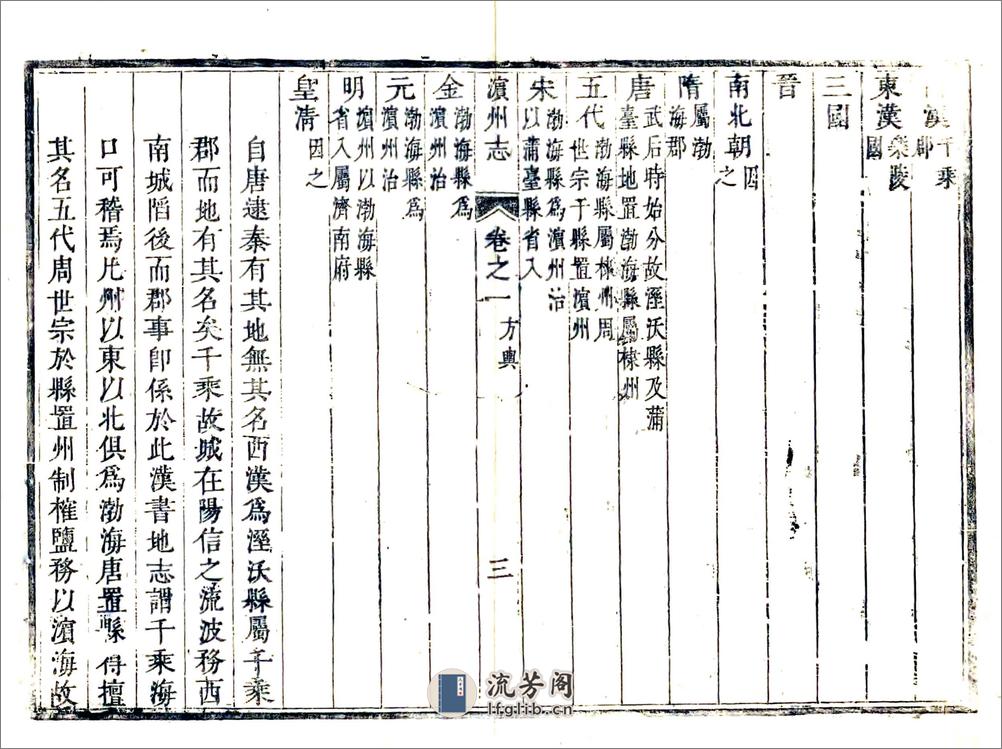 漢千乘郡
東漢樂陵國
三國
晉
南北朝因之
隋屬渤海郡
唐武后時始分故溼沃縣及蒲臺縣地置渤海縣屬棣州
五代渤海縣屬棣州周世宗于縣置濵州
宋渤海縣爲濵州治以蒲臺縣省入
濵州志 卷之一 方輿 三
金渤海縣爲濵州治
元渤海縣爲濵州治
明濵州以渤海縣省入屬濟南府
皇清因之
自唐逮秦有其地無其名西漢爲溼沃縣屬千乘
郡而地有其名矣千乘故城在陽信之流波務西
南城陷後而郡事卽係於此漢書地志謂千乘海
口可稽焉比州以東以北俱爲渤海唐置縣得擅
其名五代周世宗於縣置州制榷鹽務以濵海故
流芳阁
lfglib.cn